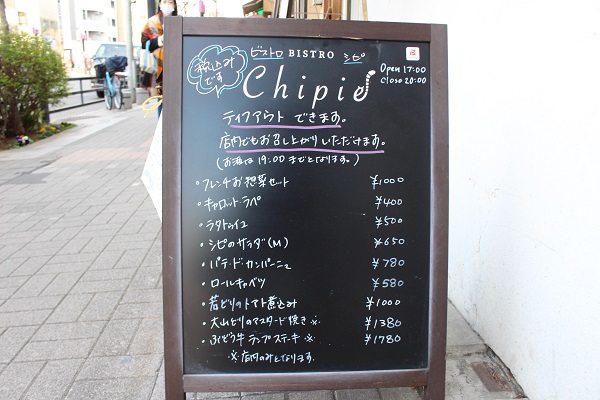 税込み
です
ビストロ BISTRO シピ
Chipie
Open 17:00
Close 20:00
テイクアウト できます。
店内でもお召し上がりいただけます。
(お酒は 19:00 までとなります。)
・フレンチお惣菜セット ¥1000
・キャロット・ラペ ¥400
・ラタトゥイユ ¥500
・シピのサラダ(M) ¥650
・パテ・ド・カンパーニュ ¥780
・ロールキャベツ ¥580
・若どりのトマト煮込み ¥1000
・大山どりのマスタード焼き ※ ¥1380
・ぶどう牛 ランプステーキ ※ ¥1780
※店内のみとなります。